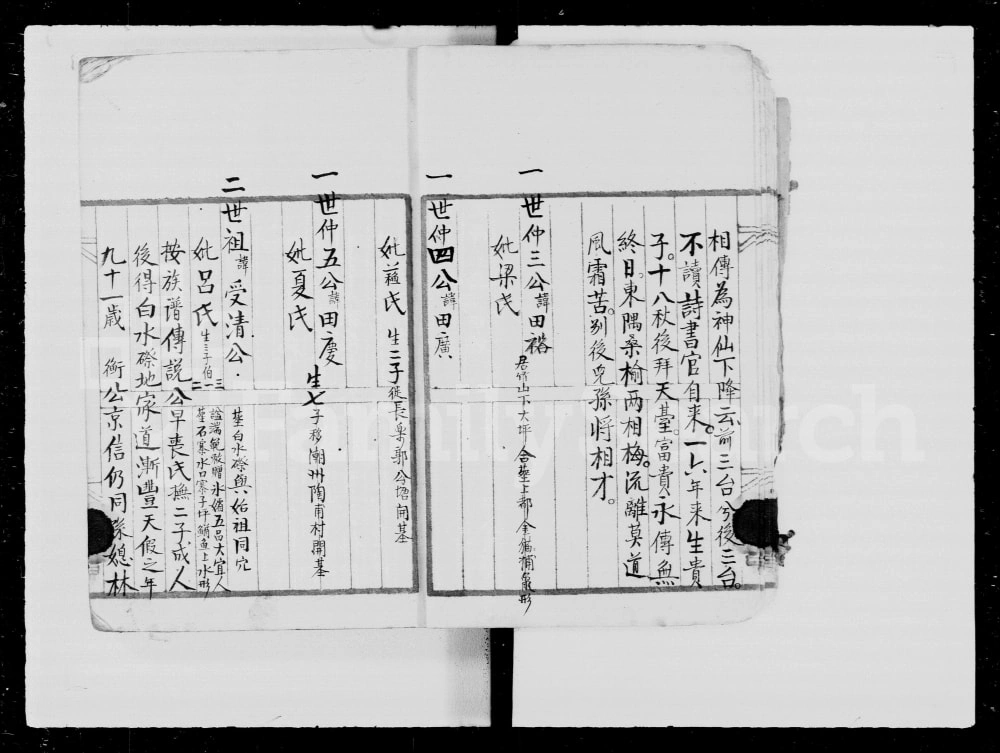 相傳為神仙下降云前三台兮後三台。
不讀詩書官自来。一六年来生貴
子。十八秋後拜天臺。富貴永傳無
終日。東隅桑榆兩相梅。流離莫道
風霜苦。别後兒孫將相才。
一世仲三公諱田褔 居竹山下大坪 合葬上都金猫捕鼠形
妣梁氏
一世仲四公諱田廣
妣氏 生二子徙長樂郭公塘開基
一世仲五公諱田慶 生七子移潮州陶甫村開基
妣夏氏
二世祖諱受清公 葬白水磜與始祖同穴
妣吕氏 生三子伯一二三 謚端勉敕贈氷婧五品大宜人
葬石寨水口寨子坪鯆魚上水形
按族谱傳説公早喪氏撫二子成人
後得白水磜地家道漸豐天假之年
九十一歲 衡公京信仍同媳林
FamilySearch